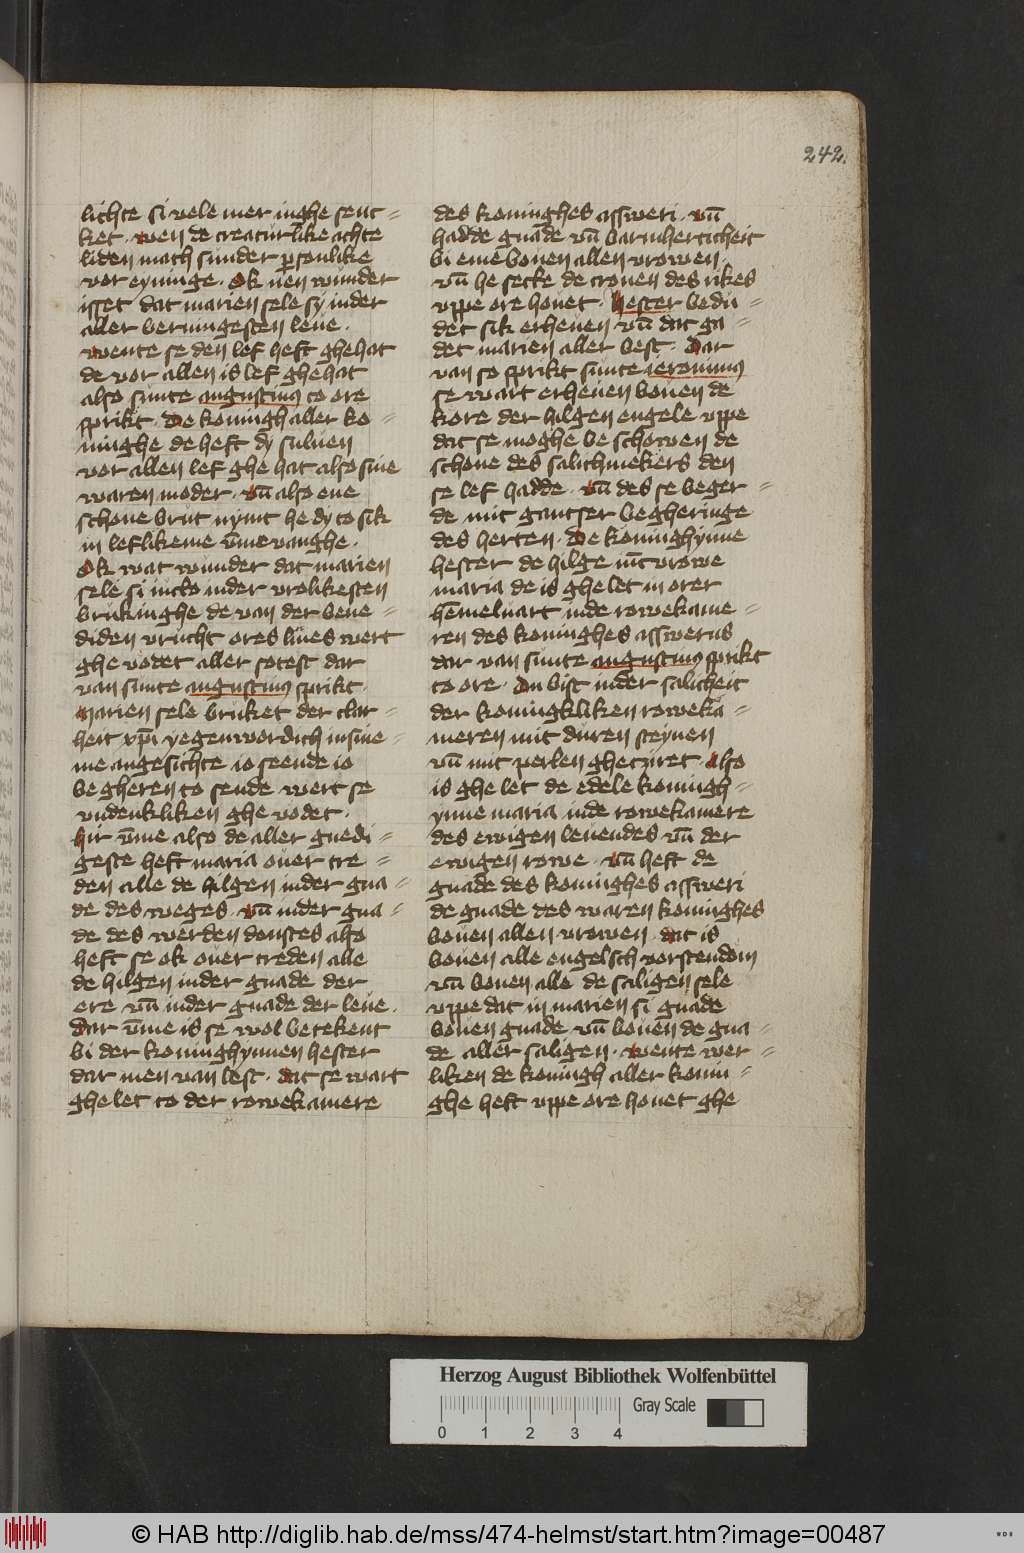 242.
lichte si vele mer inghe senc=
ket. wen de creaturlike achte
liden mach sunder psonlike
vor eyninge. Ok nen wunder
isset dat marien sele sy inder
aller bernngesten leue.
wente se den lef heft ghehat
de vor allen is lef ghehat
also sunte augustinus to ore
sprikt. De koningh aller ko=
ninghe de heft dy suluen
vor allen lef ghe hat also sine
waren moder. vn̄ also ene
schone brut nymt he dy to sik
in leflikeme v̄mevanghe.
Ok wat wunder dat marien
sele si incko inder vrolikesten
brukinghe de van der bene=
diden vrucht ores liues wert
ghe vodet aller sotest dar
van sunte augustinus sprikt.
Marien sele bruket der clar=
heit xp̄i yegenwordich in sine=
me angesichte io seende io
begheren to sende wert se
vndenkliken ghe vodet.
Hir v̄me also de aller gnedi=
geste heft maria ouer tre=
den alle de hilgen inder gna=
de des weges. vn̄ inder gna=
de des werden denstes also
heft se ok ouer treden alle
de hilgen inder gnade der
ere vn̄ inder gnade der leue.
Dar v̄me is se wol betekent
bi der koninghynnen hester
dar men van lest. dat se wart
ghe let to der rowekamere
des koninghes assweri. vn̄
hadde gnade vn̄ barmherticheit
bi eme bouen allen vrowen.
vn̄ he sette de cronen des rikes
vppe ore houet. hester bedu=
det sik erheuen vn̄ dat ga=
det marien aller best. Dar
van so sprikt sunte ieronimus
se wart erheuen bouen de
kore der hilgen engele vppe
dat se moghe be schowen de
schone des salichmekers den
se lef hadde. vn̄ des se beger=
de mit gantser begheringe
des herten. De koninghynne
hester de hilge iūcvrowe
maria de is ghe let in orer
hēmeluart inde rowekame=
ren des koninghes asswerus
dar van sunte augustinus sprikt
to ore. Du bist inder salicheit
der koningkliken roweka=
meren mit duren steynen
vn̄ mit perlen gheziret. also
is ghe let de edele koningh=
ynne maria inde rowekamere
des ewigen leuendes vn̄ der
ewigen rowe. vn̄ heft de
gnade des koninghes assweri
de gnade des waren koninghes
bouen allen vrowen. dat is
bouen alle engelsch vorstendom
vn̄ bouen alle de saligen sele
vppe dat in marien si gnade
bouen gnade vn̄ bouen de gna=
de aller saligen. wente wer=
liken de koningh aller konin=
ghe heft vppe ore houet ghe
Herzog August Bibliothek Wolfenbüttel
Gray Scale
0 1 2 3 4
© HAB http://diglib.hab.de/mss/474-helmst/start.htm?image=00487